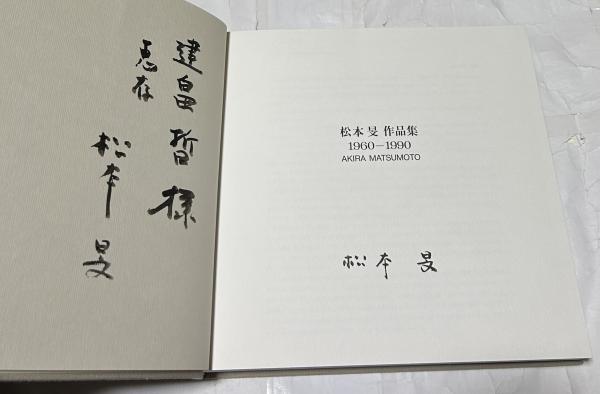 建畠晢様
恵存
松本旻
松本 旻 作品集
1960−1990
AKIRA MATSUMOTO
松本 旻